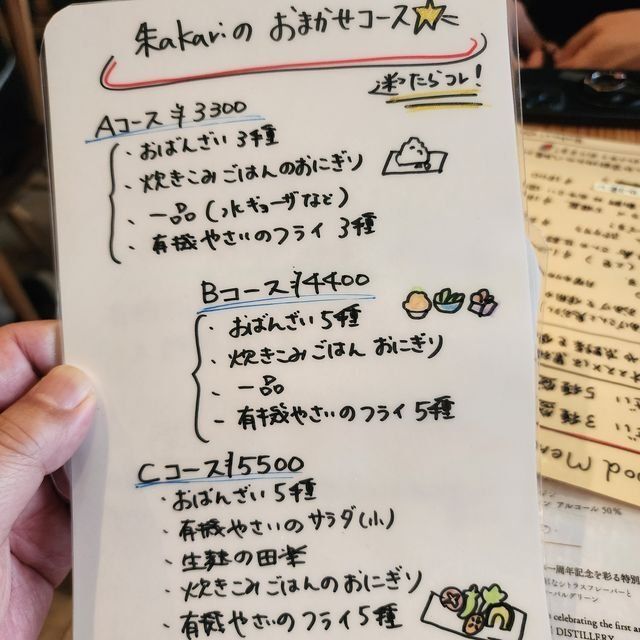 朱akariの おまかせコース
迷ったらコレ!
Aコース ¥3300
・おばんざい 3種
・炊きこみごはんのおにぎり
・一品(水ギョーザなど)
・有機やさいのフライ 3種
Bコース ¥4400
・おばんざい 5種
・炊きこみごはん おにぎり
・一品
・有機やさいのフライ 5種
Cコース ¥5500
・おばんざい 5種
・有機やさいのサラダ(小)
・生麩の田楽
・炊きこみごはんのおにぎり
・有機やさいのフライ 5種
ood Men
アルコール 50%
一周年記念を彩る特別
celebrating the first an
DISTILLERY